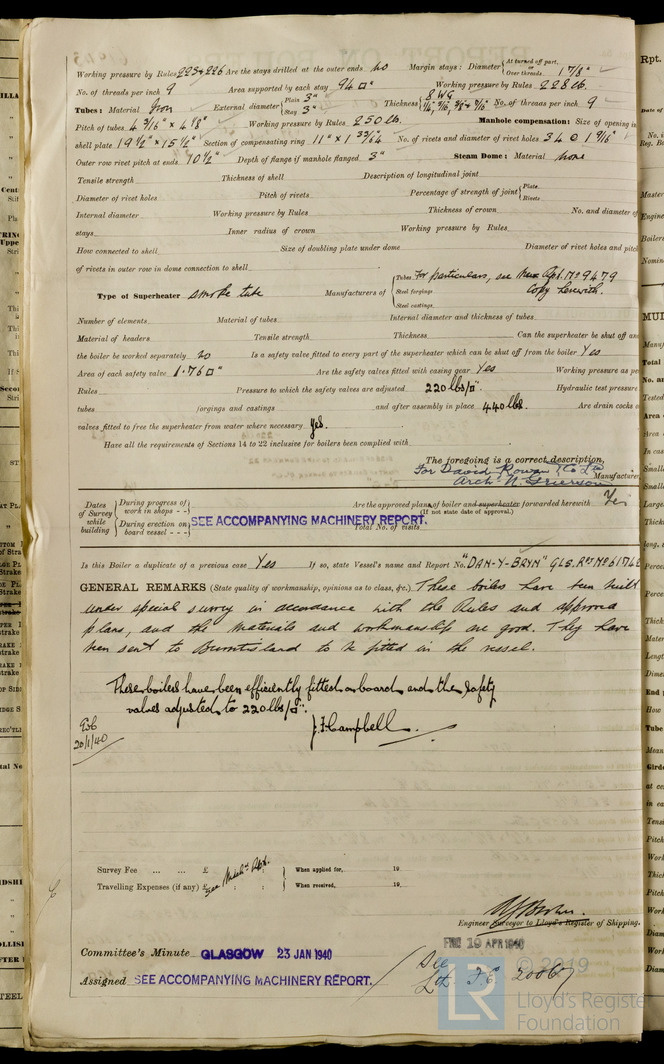 Working pressure by Rules 225 & 226 Are the stays drilled at the outer ends No Margin stays: Diameter At turned off part, or Over threads. 1 7/8"
No. of threads per inch 9 Area supported by each stay 94 □" Working pressure by Rules 228 lb.
Tubes: Material Iron External diameter Plain 3" Stay 3" Thickness 8 WG 1/4, 5/16, 3/8 & 7/16 No. of threads per inch 9
Pitch of tubes 4 3/16" x 4 1/8" Working pressure by Rules 250 lb. Manhole compensation: Size of opening in
shell plate 19 1/2" x 15 1/2" Section of compensating ring 11" x 1 33/64 No. of rivets and diameter of rivet holes 34 @ 1 9/16"
Outer row rivet pitch at ends 10 1/2" Depth of flange if manhole flanged 3" Steam Dome: Material None
Tensile strength Thickness of shell Description of longitudinal joint
Diameter of rivet holes Pitch of rivets Percentage of strength of joint Plate Rivets
Internal diameter Working pressure by Rules Thickness of crown No. and diameter of
stays Inner radius of crown Working pressure by Rules
How connected to shell Size of doubling plate under dome Diameter of rivet holes and pitch
of rivets in outer row in dome connection to shell
Type of Superheater Smoke tube Manufacturers of Tubes For particulars, see Rpt. No 9479
Steel forgings Copy herewith.
Steel castings
Number of elements Material of tubes Internal diameter and thickness of tubes
Material of headers Tensile strength Thickness Can the superheater be shut off and
the boiler be worked separately No Is a safety valve fitted to every part of the superheater which can be shut off from the boiler Yes
Area of each safety valve 1.76 □" Are the safety valves fitted with easing gear Yes Working pressure as per
Rules Pressure to which the safety valves are adjusted 220 lbs/□". Hydraulic test pressure
tubes forgings and castings and after assembly in place 440 lbs. Are drain cocks or
valves fitted to free the superheater from water where necessary Yes.
Have all the requirements of Sections 14 to 22 inclusive for boilers been complied with
The foregoing is a correct description,
For David Rowan & Co Ltd
Arch. W. Grierson Manufacturer
Dates of Survey while building During progress of work in shops - - During erection on board vessel - - -
SEE ACCOMPANYING MACHINERY REPORT.
Are the approved plans of boiler and superheater forwarded herewith Yes
(If not state date of approval.)
Total No. of visits
Is this Boiler a duplicate of a previous case Yes If so, state Vessel's name and Report No. "DAN-Y-BRYN" GLS. Rpt No 6174
GENERAL REMARKS (State quality of workmanship, opinions as to class, &c.) These boilers have been built
under special survey in accordance with the Rules and approved
plans, and the materials and workmanship are good. They have
been sent to Burntisland to be fitted in the vessel.
These boilers have been efficiently fitted on board and the safety
valves adjusted to 220 lbs/□".
J. F. Campbell.
20/1/40
Survey Fee ... ... £ See Mach. Rpt. When applied for, 19
Travelling Expenses (if any) £ When received, 19
Engineer Surveyor to Lloyd's Register of Shipping.
FRI 19 APR 1940
Committee's Minute GLASGOW 23 JAN 1940
Assigned SEE ACCOMPANYING MACHINERY REPORT.
See
© 2019
LR Lloyd's Register
Foundation
Rpt.